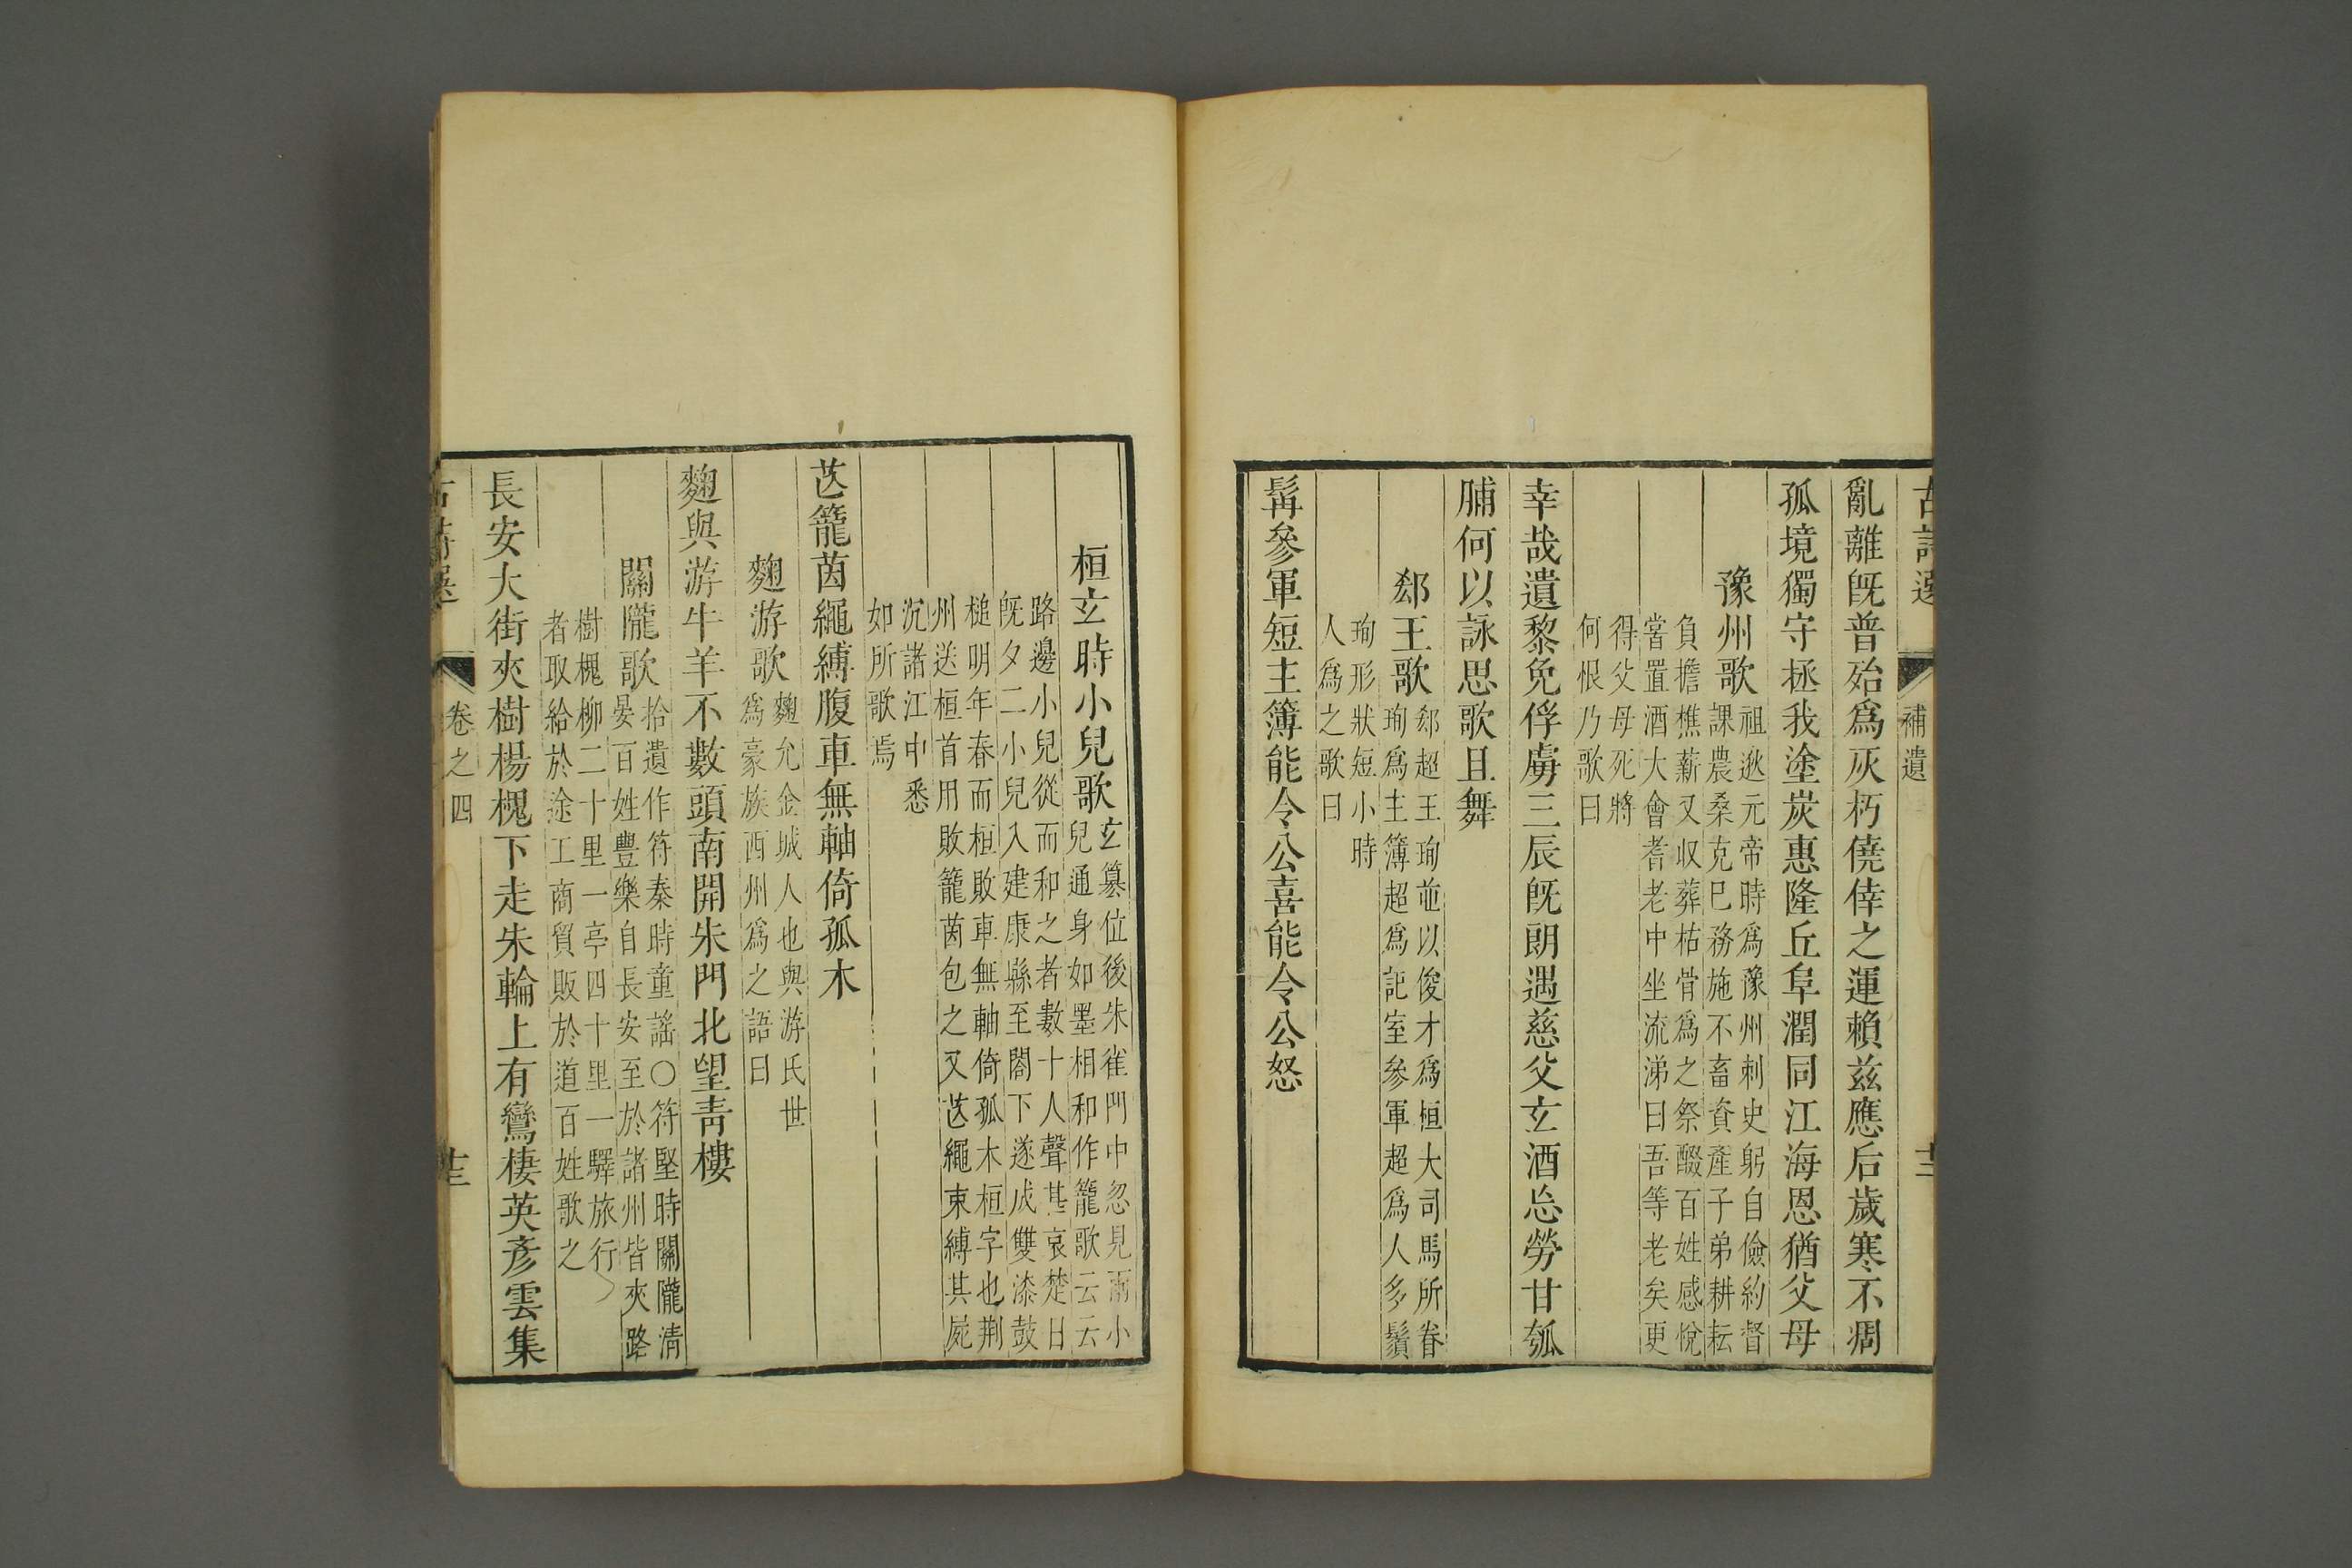 古詩選 補遺 十二
亂離旣普殆爲灰朽僥倖之運賴兹應后歲寒不凋
孤境獨守拯我塗炭惠隆丘阜潤同江海恩猶父母
豫州歌
祖逖元帝時爲豫州刺史躬自儉約督
課農桑克已務施不畜資產子弟耕耘
負擔樵薪又収葬枯骨爲之祭醊百姓感悅
嘗置酒大會耆老中坐流涕曰吾等老矣更
得父母死將
何恨乃歌曰
幸哉遺黎免俘虜三辰旣朗遇慈父玄酒忘勞甘瓠
脯何以詠思歌且舞
郄王歌
郄超王珣並以俊才爲桓大司馬所眷
珣爲主簿超爲記室參軍超爲人多鬚
珣形狀短小時
人爲之歌曰
髯參軍短主簿能令公喜能令公怒
桓玄時小兒歌
玄簒位後朱雀門中忽見兩小
兒通身如墨相和作籠歌云云
路邊小兒從而和之者數十人聲甚哀楚日
旣夕二小兒入建康縣至閤下遂成雙漆鼓
槌明年春而桓敗車無軸倚孤木桓字也荆
州送桓首用敗籠茵包之又芒繩束縛其屍
沉諸江中悉
如所歌焉
芒籠茵繩縛腹車無軸倚孤木
麴游歌
麴允金城人也與游氏世
爲豪族西州爲之語曰
麴與游牛羊不數頭南開朱門北望靑樓
關隴歌
拾遺作符秦時童謡○符堅時關隴淸
晏百姓豐樂自長安至於諸州皆夾路
樹槐柳二十里一亭四十里一驛旅行
者取給於途工商貿販於道百姓歌之
長安大街夾樹楊槐下走朱輪上有鸞棲英彥雲集
卷之四 十三